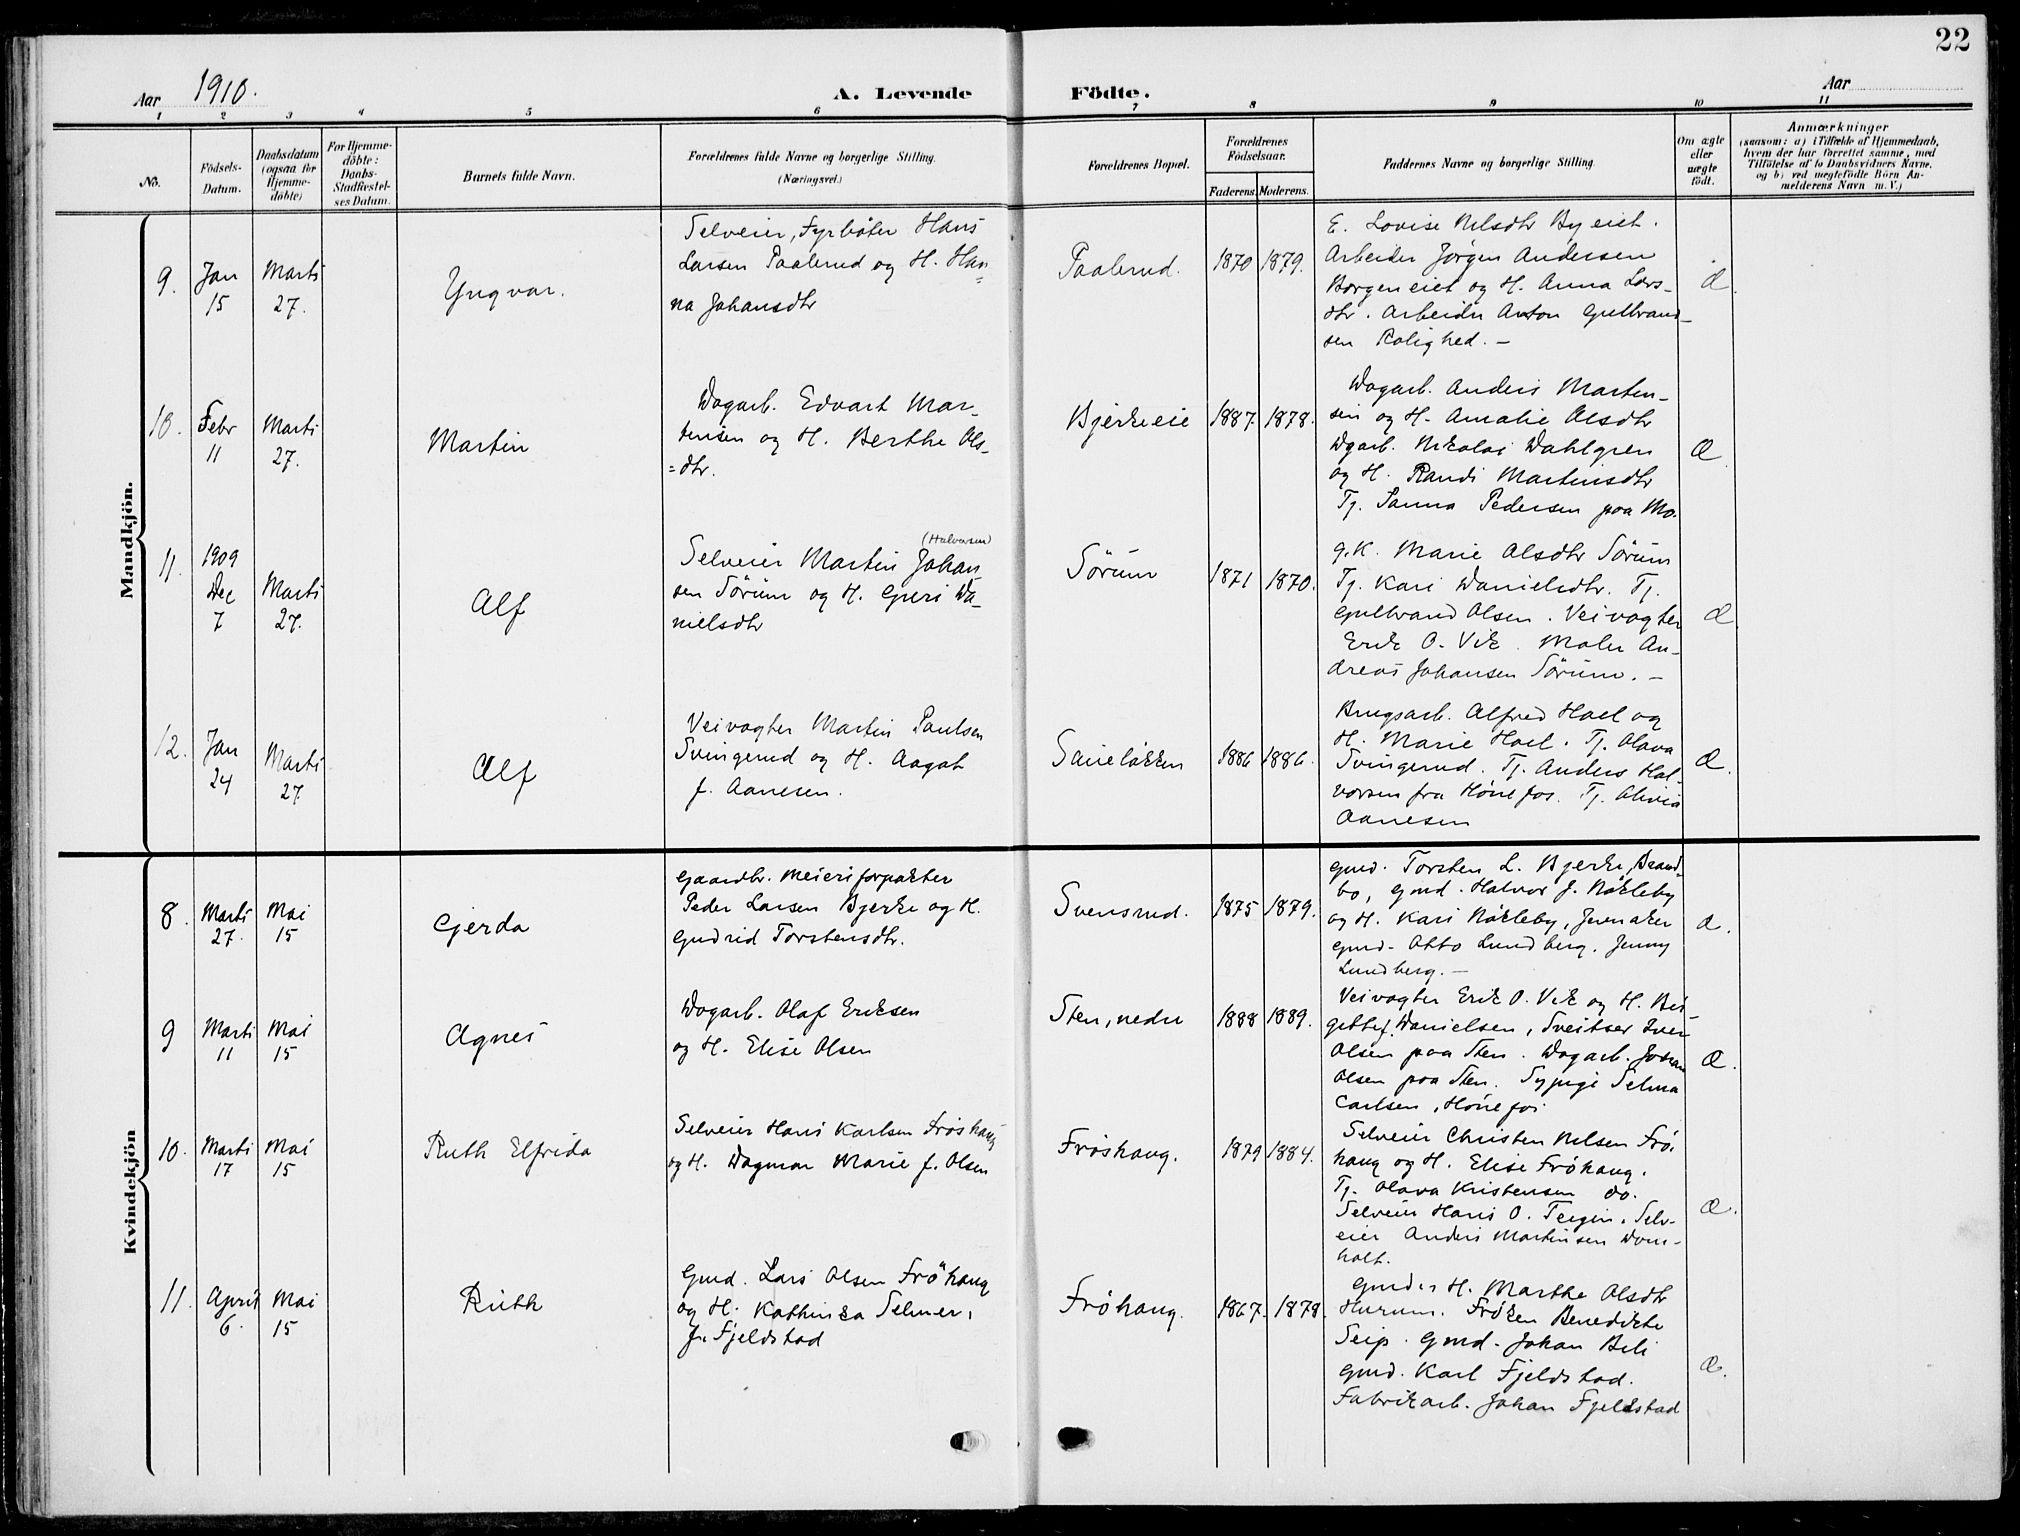 22
Aar 1910.
A. Levende
Födte.
Aar
1 2 3 4 5 6 7 8 9 10 11
No.
Födsels-
Datum.
Daabsdatum
(ogsaa for
Hjemme-
döbte)
For Hjemme-
döbte:
Daabs-
Stadfæstel-
ses Datum.
Barnets fulde Navn.
Forældrenes fulde Navne og borgerlige Stilling.
(Næringsvei.)
Forældrenes Bopæl.
Forældrenes
Födselsaar.
Faderens.
Moderens.
Faddernes Navne og borgerlige Stilling
Om ægte
eller
uægte
födt.
Anmærkninger
(saasom: a) i Tilfælde af Hjemmedaab,
hvem der har forrettet samme, med
Tilföielse af to Daabsvidners Navne,
og b) ved uægtefödte Börn An-
melderens Navn m. V.)
Mandkjön.
9.
Jan
15
Marts
27.
Yngvar.
Selveier, Fyrböter Hans
Larsen Paalerud og H. Han
=
na Johansdtr
Paalerud.
1870
1879.
E. Lovise Nilsdtr Byeiet.
Arbeider Jørgen Andersen
Borgeneiet og H. Anna Lars-
dtr. Arbeider Anton Gulbrand-
sen Rolighed. -
Æ.
10.
Febr
11
Marts
27.
Martin
Dagarb. Edvart Mar-
tinsen og H. Berthe Ols-
=dtr.
Bjerkeeie
1887.
1878.
Dagarb. Anders Marten-
sen og H. Amalie Olsdtr
Dgarb. Nikolai Dahlgren
og H. Randi Martinsdtr
Tj. Sanna Pedersen paa Mo.
Æ.
11.
1909
Dec
7
Marts
27.
Alf
(Halvorsen)
Selveier Martin Johan
sen Sörum og H. Gueri Da-
nielsdtr
Sörum
1871
1870.
g.K. Marie Olsdtr Sörum
Tj. Kari Danielsdtr. Tj.
Gulbrand Olsen. Veivogter
Erik O. Vik. Maler An-
dreas Johansen Sörum. -
Æ.
12.
Jan
24
Marts
27
Alf
Veivogter Martin Paulsen
Svingerud og H. Aagot
f. Aanesen.
1886
1886.
Brugsarb. Alfred Hoel og
H. Marie Hoel. Tj. Olava
Svingerud. Tj. Anders Hal-
vorsen fra Hönefos. Tj. Olivia
Aanesen
Æ.
Kvindekjön
8.
Marts
27.
Mai
15
Gjerda
Gaardbr. Meieriforpakter
Peder Larsen Bjerke og H.
Gudrid Torstensdtr.
Svensrud.
1875
1879.
Gmd. Torsten L. Bjerke, Brand-
bo, Gmd. Halvor J. Nökleby
og H. Kari Nökleby, Jevnaker
Gmd. Otto Lundberg. Jenny
Lundberg. -
Æ.
9
Marts
11
Mai
15
Agnes
Dagarb. Olaf Eriksen
og H. Elise Olsen
Sten, nedre
1888
1889.
Veivogter Erik O. Vik og H. Bir-
gitte f. Danielsen, Sveitser Iver
Olsen paa Sten. Dagarb. Johan
Olsen paa Sten. Sypige Selma
Carlsen, Hönefos
Æ.
10.
Marts
17
Mai
15
Ruth Elfrida
Selveier Hans Karlsen Fröshaug
og H. Dagmar Marie f. Olsen
Fröshaug.
1879
1884.
Selveier Christen Nilsen Frö-
haug og H. Elise Fröhaug.
Tj. Olava Kristensen do.
Selveier Hans O. Teigen. Selv-
eier Anders Martinsen Dom-
holt.
Æ.
11.
April
6.
Mai
15
Ruth
Gmd. Lars Olsen Fröhaug
og H. Kathinka Selmer,
f. Fjeldstad
Fröhaug.
1867.
1878.
Gmdes H. Marthe Olsdtr
Hurum. Fröken Benedikte
Seip. Gmd. Johan Bili
Gmd. Karl Fjeldstad.
Fabrikarb. Johan Fjeldstad
Æ.